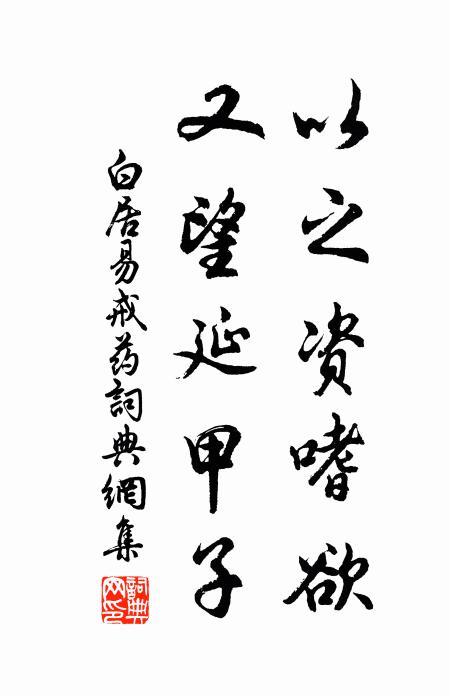 以之资嗜欲
又望延甲子
白居易戒药詞典網集
詞典网印